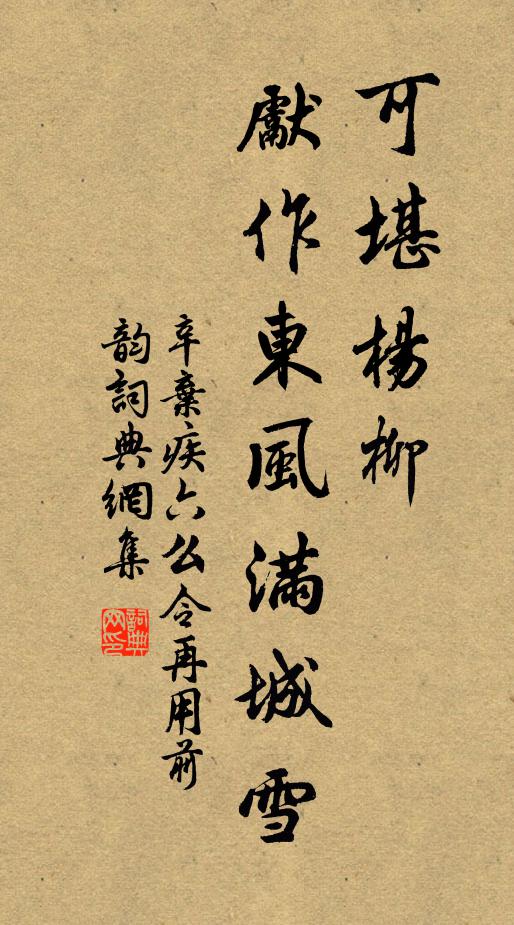 可堪楊柳
獻作東風滿城雪
辛棄疾六么令再用前
韵詞典網集
詞典网印